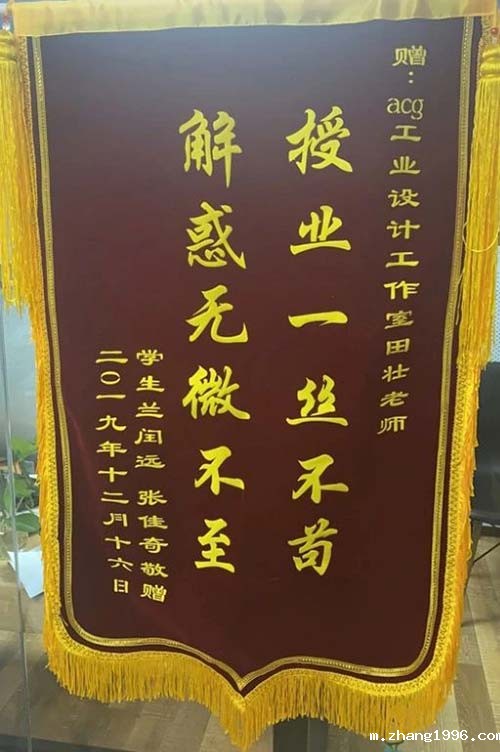 赠：acg工业设计工作室田壮老师
授业一丝不苟
解惑无微不至
学生兰闰远 张佳奇敬赠
二〇一九年十二月十六日
m.zhang1996.com